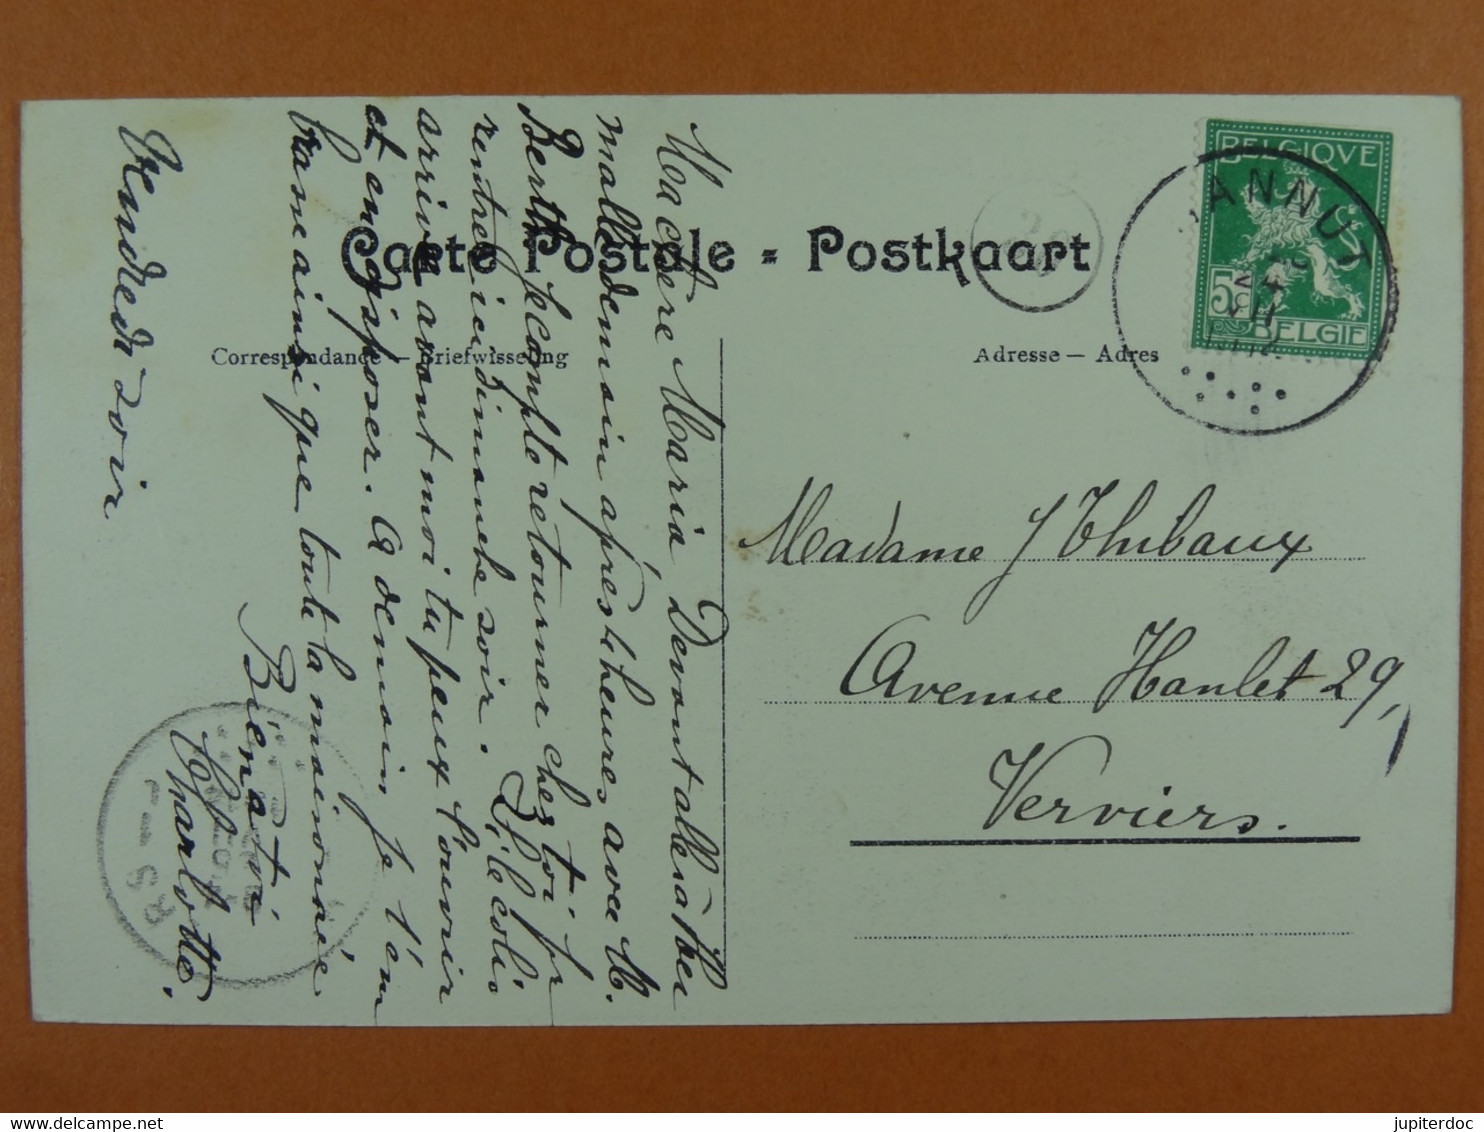 Carte Postale - Postkaart
Correspondance — Briefwisseling
Adresse — Adres
BELGIQUE
5
BELGIE
ANNUT
Ma chère Maria, Devant aller à
mall demain après heures avec M.
Berthe je compte retourner chez toi
rentrer ici dimanche soir. Si le colis
arrive avant moi tu peux l'ouvrir
et en disposer. A demain, je t'em
brasse ainsi que toute la maisonnée
Bien à toi
Charlotte.
Vendredi soir
Madame J Thibaux
Avenue Hanlet 29,
Verviers.
RS
jupiterdoc